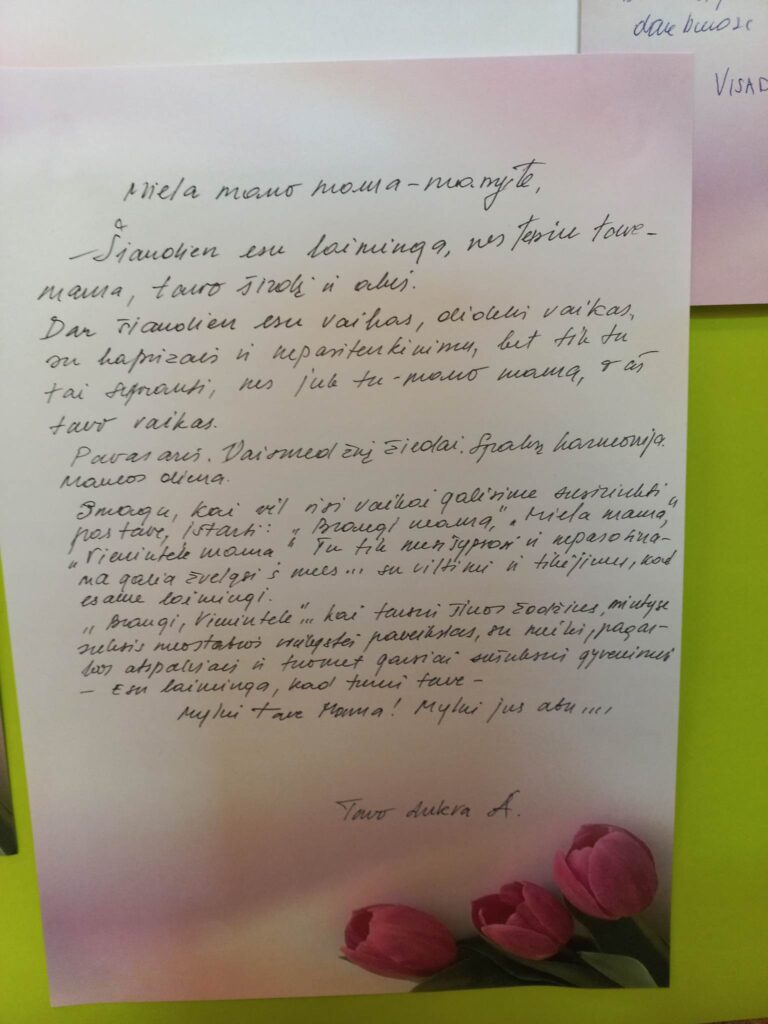 dar būnose
VISAD
Miela mano mama-mamyte,
Šiandien esu laiminga, nes turiu tave-
mama, tavo širdį ir akis.
Dar šiandien esu vaikas, didelis vaikas,
su kaprizais ir nepasitenkinimu, bet tik tu
tai supranti, nes juk tu-mano mama, o aš
tavo vaikas.
Pavasaris. Vaismedžių žiedai. Spalvų harmonija.
Mamos diena.
Smagu, kai vėl visi vaikai galėsime susirinkti
pas tave, ištarti: "Brangi mama," "Miela mama,"
"Vienintele mama." Tu tik nusišypsosi ir
galia žvelgsi į mus... su viltimi ir tikėjimu, kad
esame laimingi.
"Brangi, Vienintele"... kai tariu šiuos žodžius, mintyse
nuostabus paveikslas, su meilės, pagar-
bos atspalviais ir tuomet garsiai sušuksiu gyvenimui
- Esu laiminga, kad turiu tave-
Myliu tave Mama! Myliu jus abu....
Tavo dukra A.